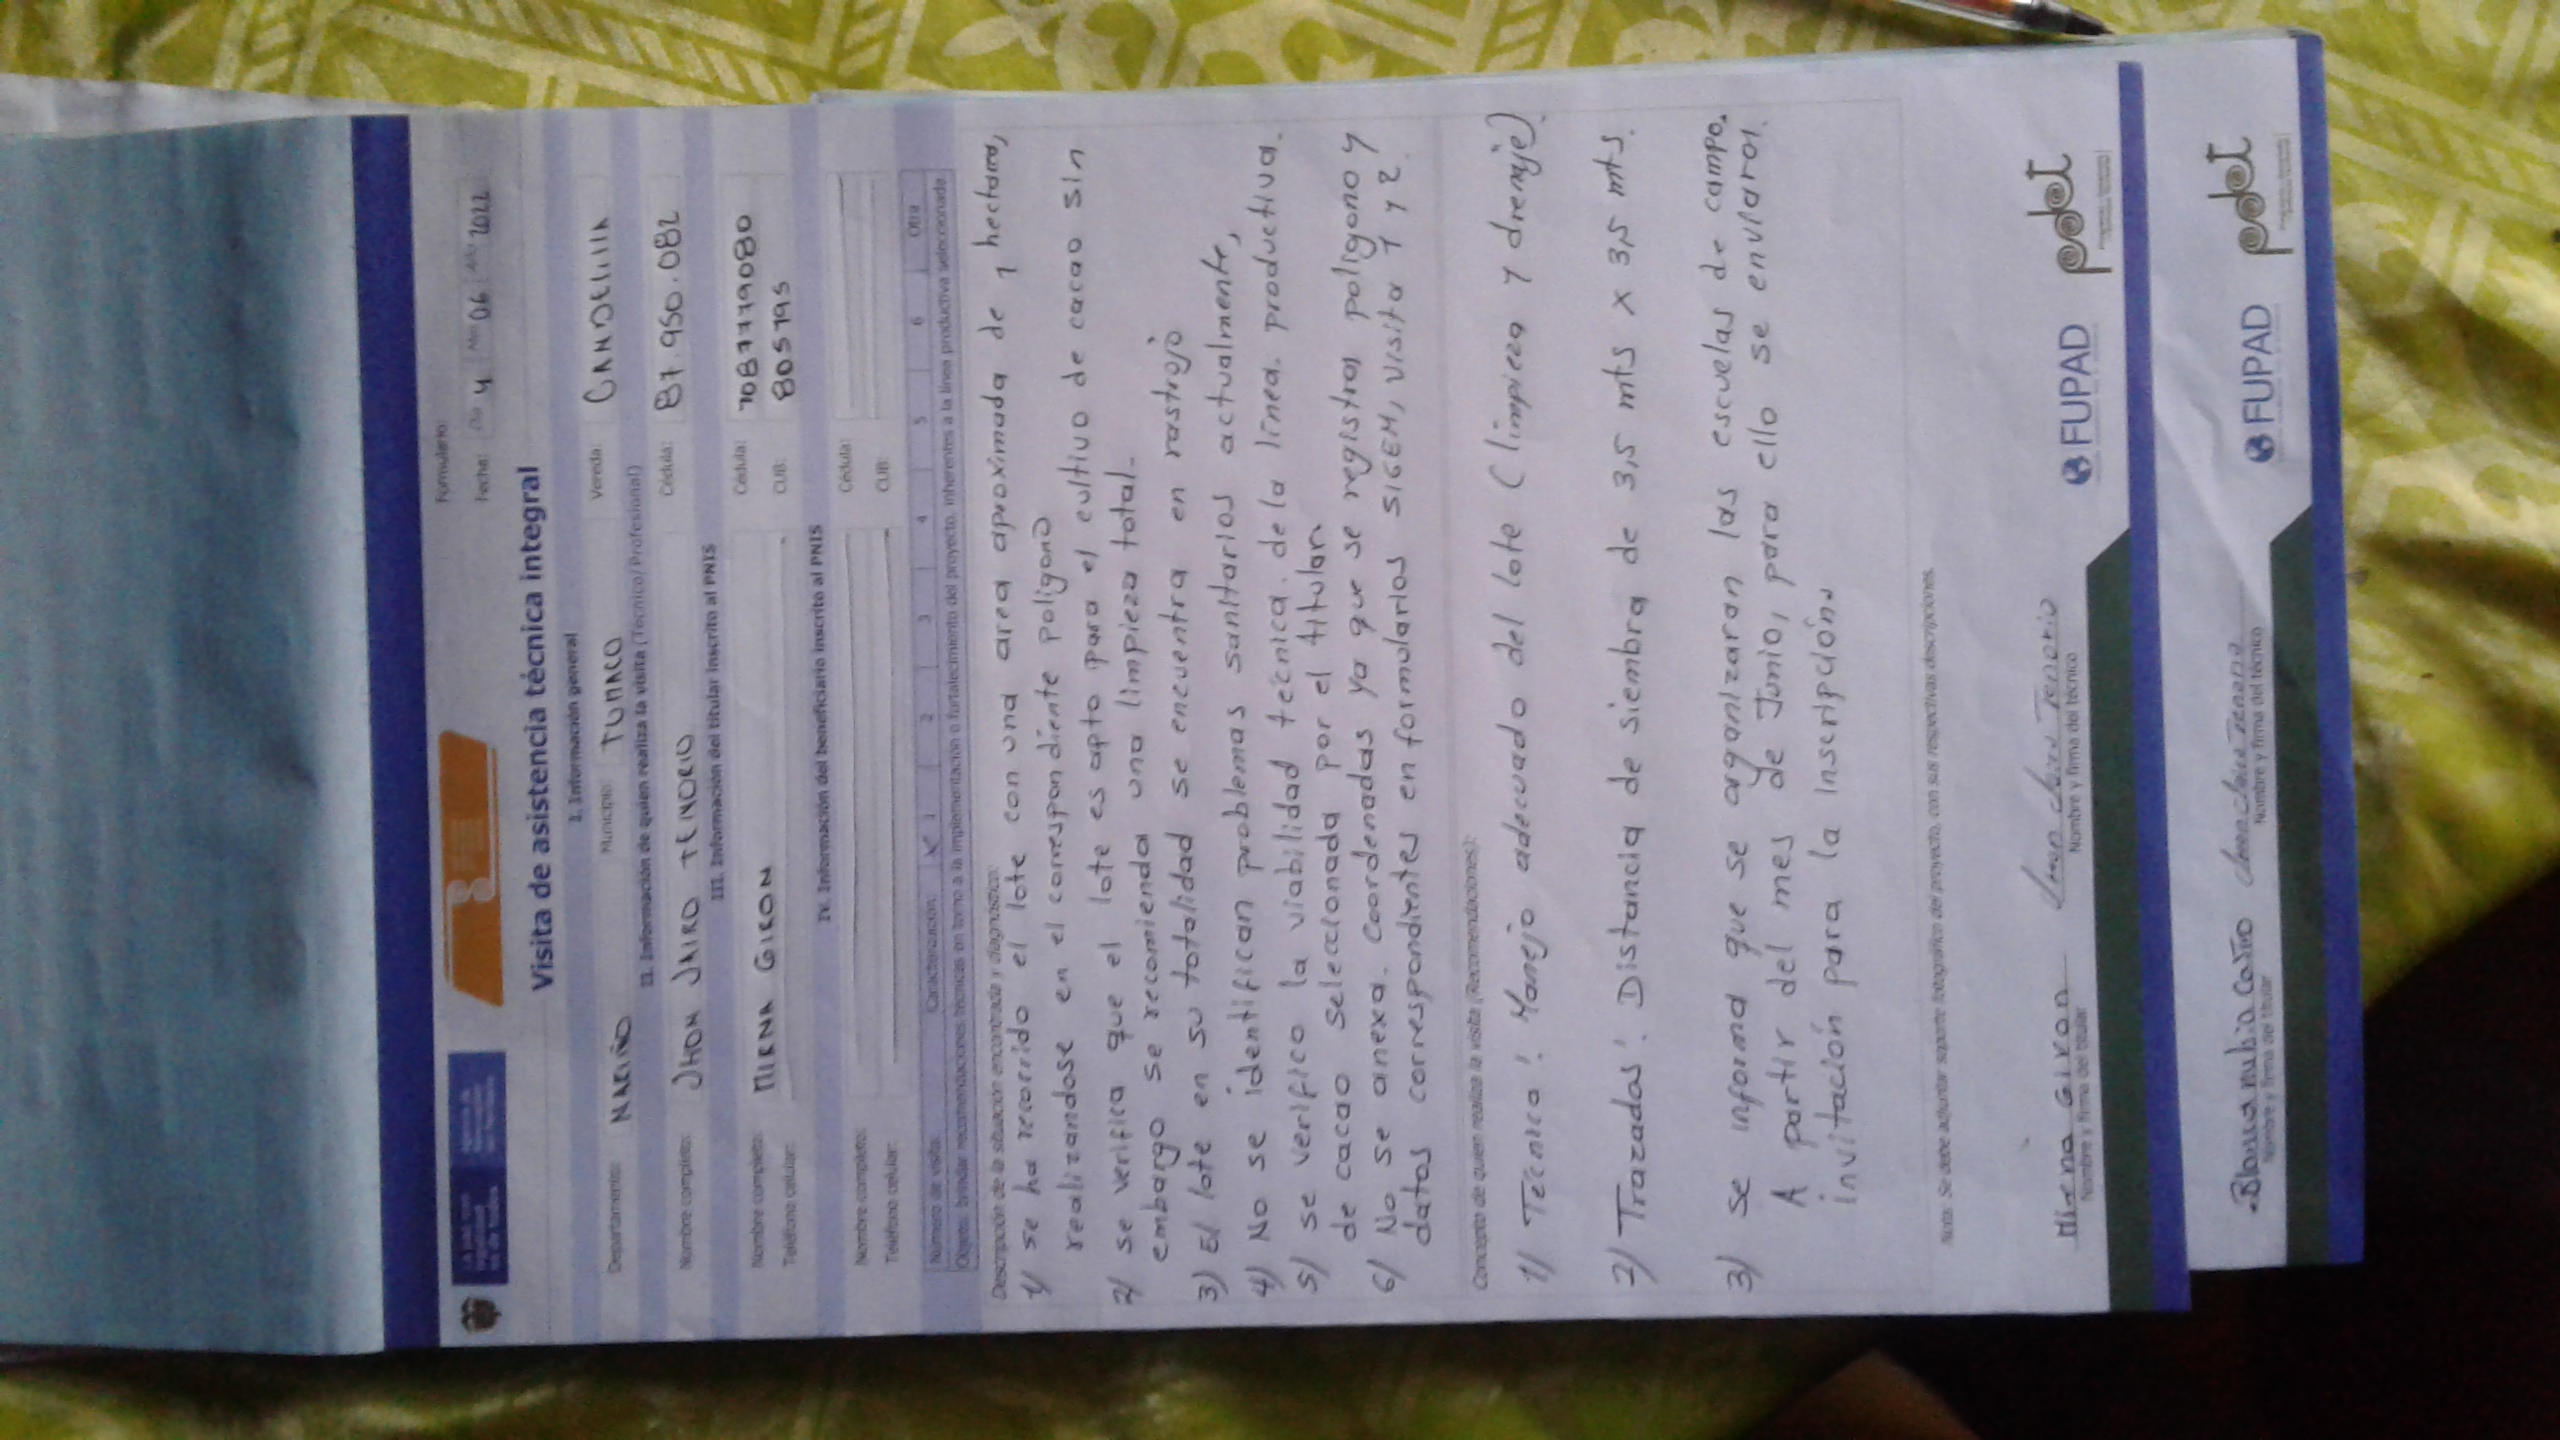 Formulario:
Fecha: Día 4 Mes 06 Año 2022
Visita de asistencia técnica integral
I. Información general
Departamento: NARIÑO Municipio: TUMACO Vereda: CANDELILLA
II. Información de quien realiza la visita (Técnico/ Profesional)
Nombre completo: JHON JAIRO TENORIO Cédula: 87.950.082
III. Información del titular inscrito al PNIS
Nombre completo: MIRNA GIRON Cédula: 1087779080
Teléfono celular: CUB: 805795
IV. Información del beneficiario inscrito al PNIS
Nombre completo: Cédula:
Teléfono celular: CUB:
Número de visita: Caracterización: X 1 2 3 4 5 6 Otra
Objeto: brindar recomendaciones técnicas en torno a la implementación o fortalecimiento del proyecto, inherentes a la línea productiva seleccionada
Descripción de la situación encontrada y diagnóstico:
1) se ha recorrido el lote con una area aproximada de 1 hectarea,
realizandose en el correspondiente poligono
2) se verifica que el lote es apto para el cultivo de cacao sin
embargo se recomienda una limpieza total.
3) El lote en su totalidad se encuentra en rastrojo
4) No se identifican problemas sanitarios actualmente,
5) se verifico la viabilidad técnica. de la línea. productiva.
de cacao seleccionada por el titular.
6) No se anexa. Coordenadas ya que se registra poligono y
datos correspondientes en formularios SIGEM, visita 1 y 2.
Concepto de quien realiza la visita (Recomendaciones):
1) Tecnica: Manejo adecuado del lote (limpieza y drenaje).
2) Trazados: Distancia de siembra de 3,5 mts x 3,5 mts.
3) Se informa que se organizaran las escuelas de campo.
A partir del mes de Junio, para ello se enviaran
invitación para la inscripción.
Nota: Se debe adjuntar soporte fotográfico del proyecto, con sus respectivas descripciones.
Mirna Giron Jhon Jairo Tenorio
Nombre y firma del titular Nombre y firma del técnico
FUPAD pdet
Blanca nubia Castro
Nombre y firma del titular Nombre y firma del técnico
FUPAD pdet